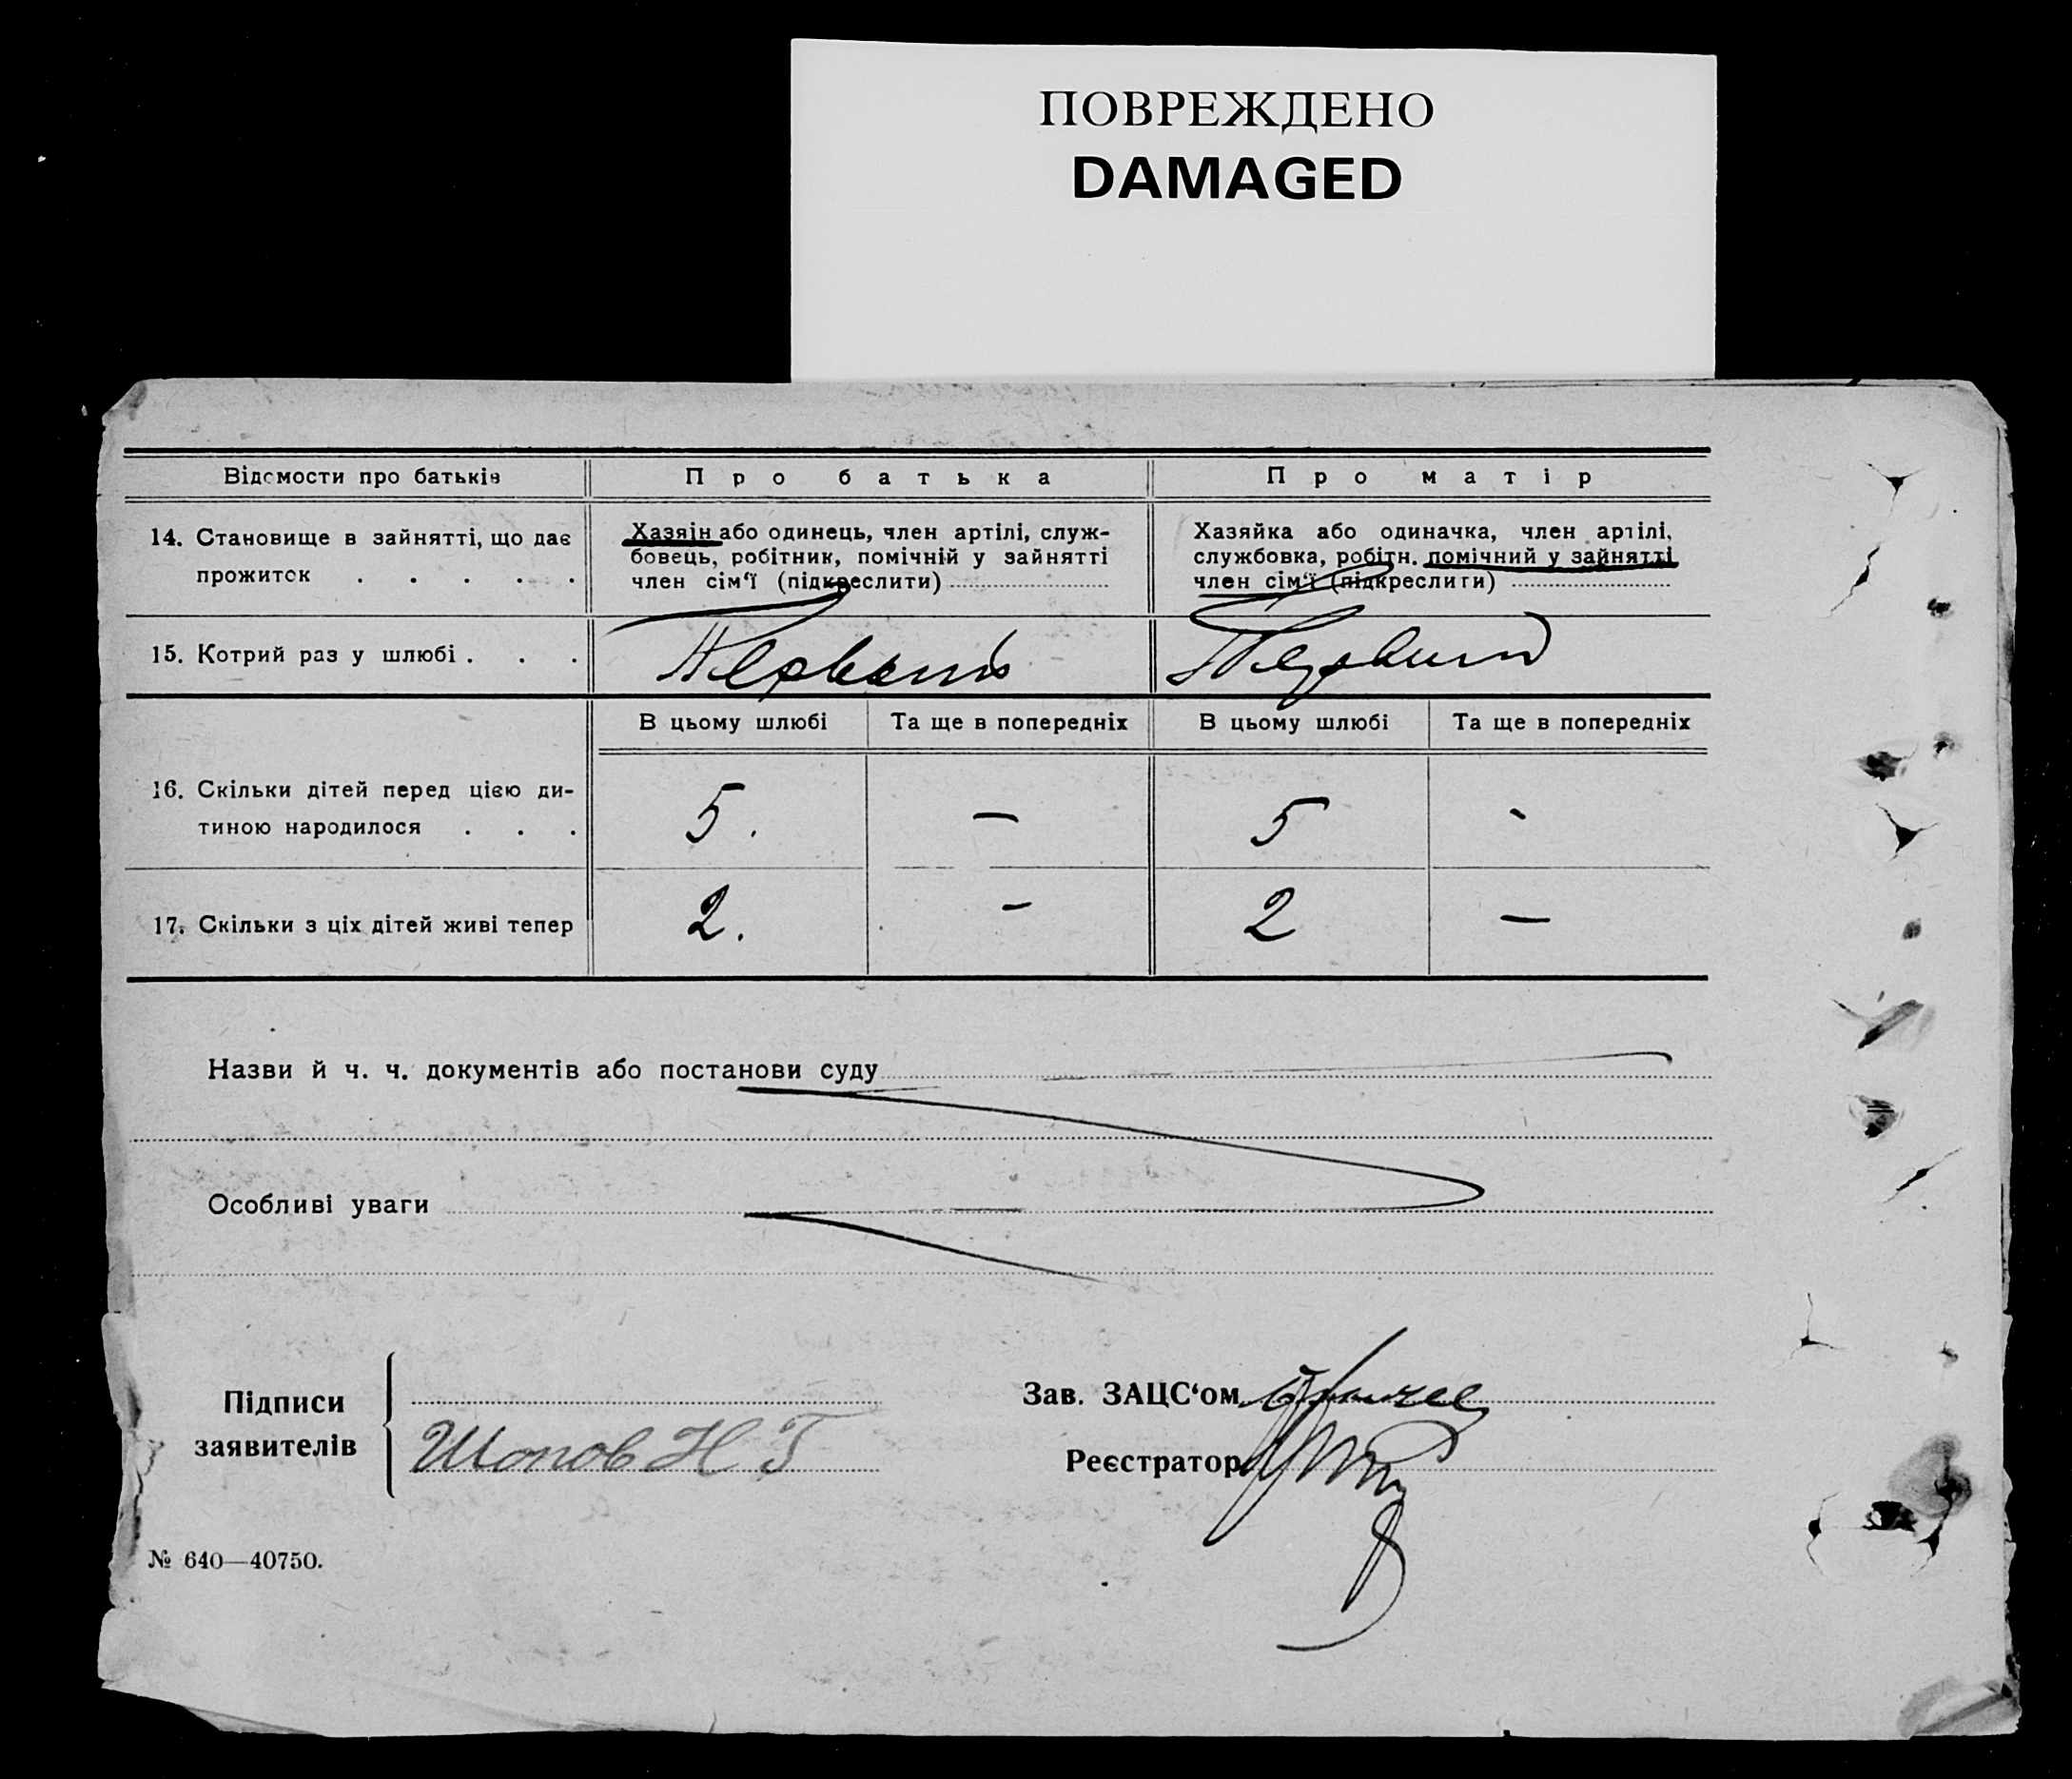 ПОВРЕЖДЕНО
DAMAGED
Відомости про батьків
Про батька
Про матір
14. Становище в зайнятті, що дає
прожиток . . . . .
Хазяїн або одинець, член артілі, служ-
бовець, робітник, помічній у зайнятті
член сім‘ї (підкреслити)
Хазяйка або одиначка, член артілі,
службовка, робітн. помічний у зайнятті
член сім‘ї (підкреслити)
15. Котрий раз у шлюбі . . .
В цьому шлюбі
Та ще в попередніх
В цьому шлюбі
Та ще в попередніх
16. Скільки дітей перед цією ди-
тиною народилося . . .
5.
—
5
-
17. Скільки з ціх дітей живі тепер
2.
-
2
—
Назви й ч. ч. документів або постанови суду
Особливі уваги
Підписи
заявителів
Шопов Н Г
Зав. ЗАЦС‘ом
Реєстратор
№ 640—40750.